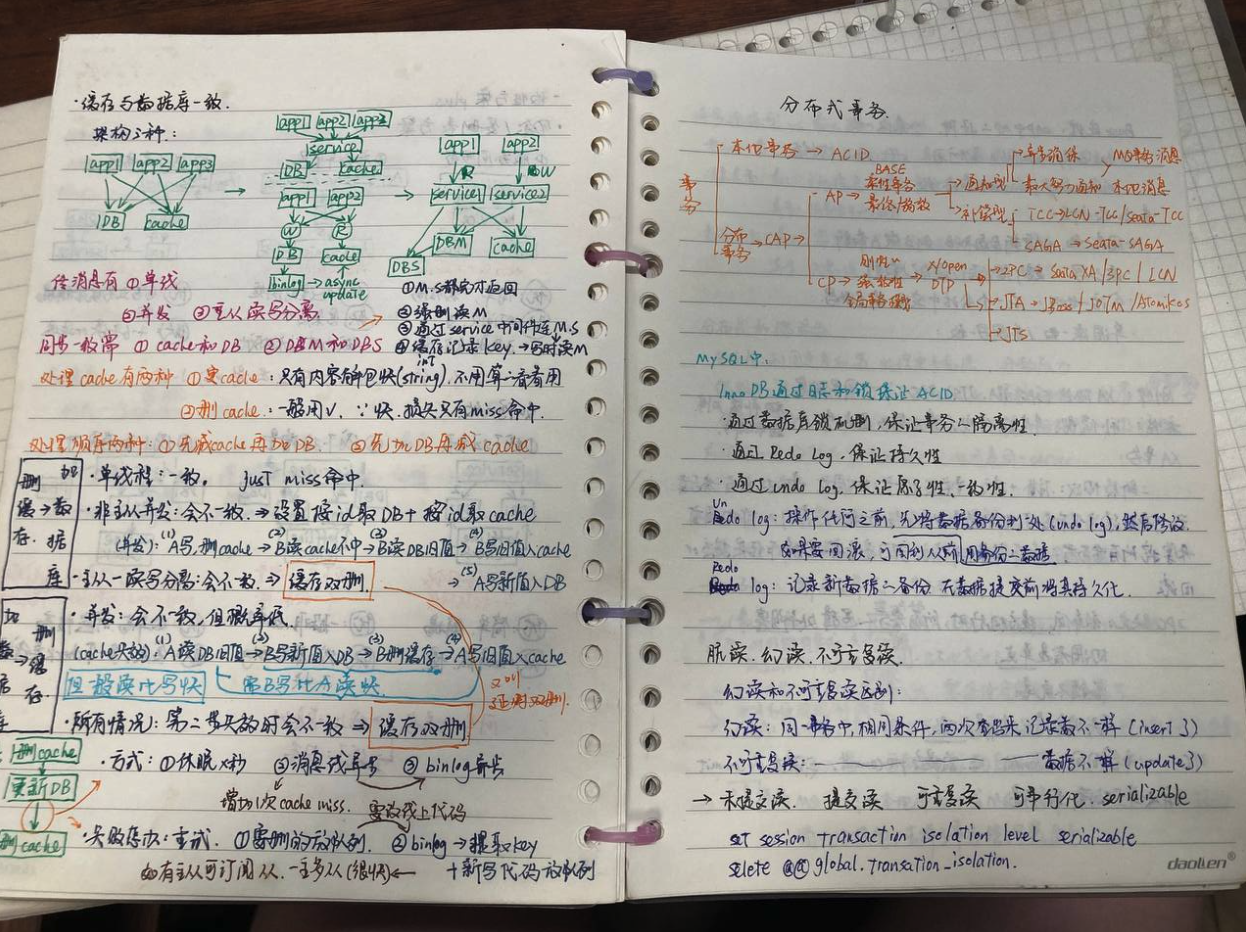 ·缓存与数据库一致.
架构三种:
app1 app2 app3
DB cache
app1 app2 app3
service
DB cache
app1 app2
W R
DB cache
binlog → async update
app1 app2
R W
service1 service2
DBM cache
DBS
①M.S都写才返回
②强制读M
③通过service中间件连M.S
④缓存记录key.→写时读M
①单线
②并发 ③主从读写分离
同步一致常 ①cache和DB ②DBM和DBS
处理cache有两种 ①更cache:只有内容静包快(string),不用算一看着用
int
②删cache:一般用√. ∵快.损失只有miss命中.
处理顺序两种:①先减cache再加DB. ②先加DB再减cache
删缓存→加数据库
·单线程:一致. just miss命中.
·非主从并发:会不一致.⇒设置按id取DB+按id取cache
(并发):(1)A写,删cache→(2)B读cache不中→(3)B读DB旧值→(4)B写旧值入cache
→(5)A写新值入DB
·主从一读写分离:会不一致.⇒缓存双删
·并发:会不一致,但概率低.
(cache失效):(1)A读DB旧值→(2)B写新值入DB→(3)B删缓存→(4)A写旧值入cache
但一般读比写快 需B写比A读快
又叫
延时双删.
·所有情况:第二步失败时会不一致⇒缓存双删
删cache
更新DB
删cache
·方式:①休眠x秒 ②消息或异步 ③binlog异步
增加1次cache miss. 要改线上代码
·失败怎办:重试. ①需删的放队列. ②binlog→提取key
如有主从可订阅从.一主多从(很快)← +新写代码放队列
分布式事务.
事务
本地事务→ACID
分布事务→CAP→
AP→
BASE
柔性事务
最终一致
→通知型
→异步消息 MQ事务消息
最大努力通知 本地消息
→补偿型
TCC→LCN-TCC/seata-TCC
SAGA→Seata-SAGA
CP→
刚性"
强一致性
X/Open
DTP
→2PC→Saata XA/3PC/LCN
→JTA→JBoss/JOTM/Atomikos
→JTS
MySQL中.
InnoDB通过日志和锁保证ACID
·通过数据库锁机制,保证事务之隔离性.
·通过Redo Log.保证持久性
·通过undo log.保证原子性、一致性.
Undo log:操作任何之前,先将数据备份到一处(undo log),然后修改.
如果要回滚,可回到从前用备份之数据
Redo log:记录新数据之备份.在数据提交前将其持久化.
脏读.幻读.不可重复读.
幻读和不可重复读区别:
幻读:同一事务中,相同条件,两次查出来记录数不一样(insert了)
不可重复读:—— —— 数据不一样(update了)
→未提交读. 提交读 可重复读 可串行化. serializable
set session transaction isolation level serializable
selete @@global.transation_isolation.
daolien®